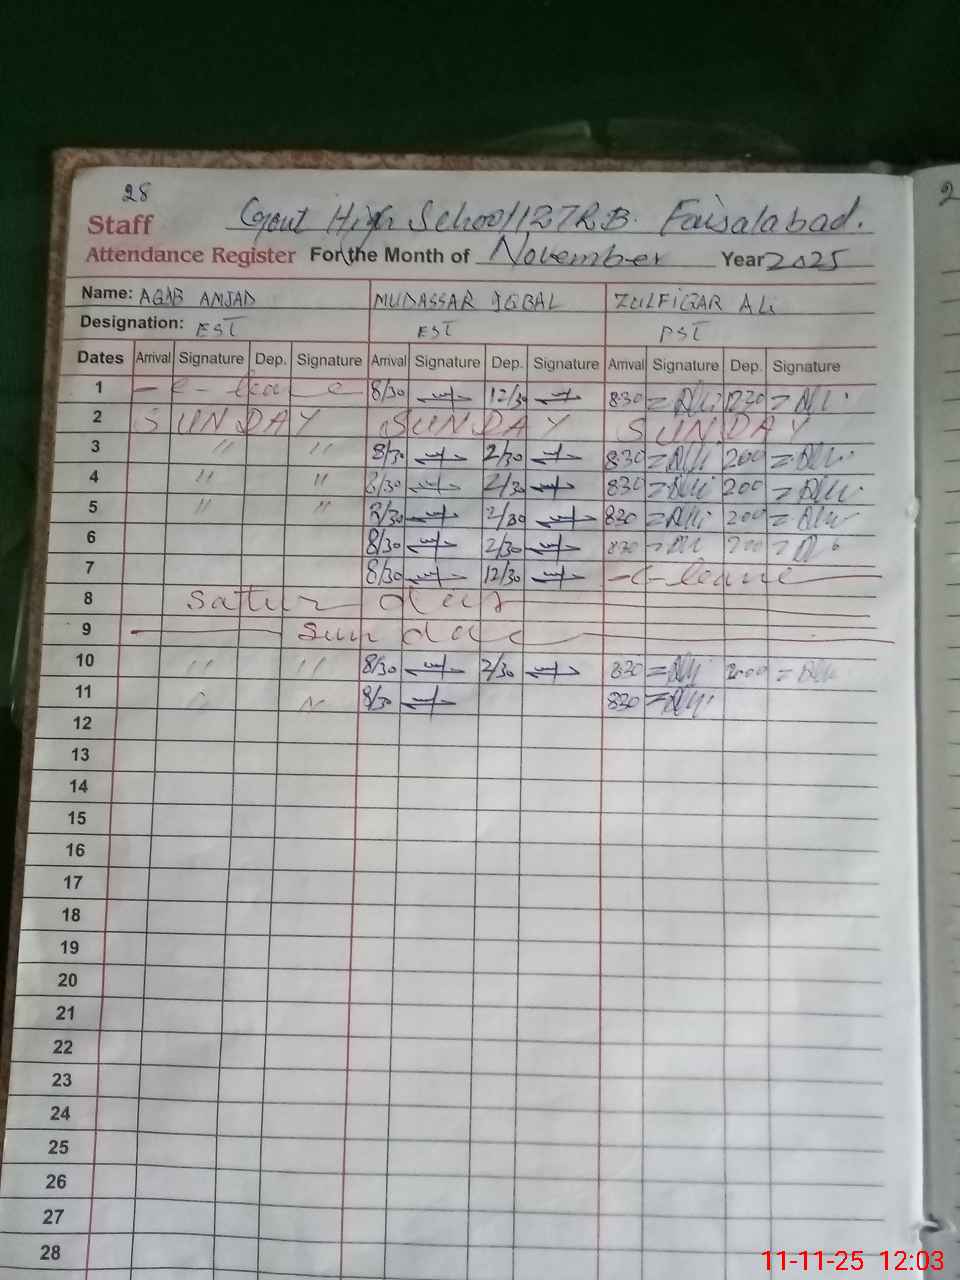 28 2
Staff Govt High School 127 R.B. Faisalabad.
Attendance Register For the Month of November Year 2025
Name: AQAB AMJAD MUDASSAR IQBAL ZULFIQAR ALi
Designation: EST EST PST
Dates Arrival Signature Dep. Signature Arrival Signature Dep. Signature Arrival Signature Dep. Signature
1 - c - leave 8/30 12/30 830 1230
2 SUNDAY SUNDAY SUNDAY
3 " " 8/30 2/30 830 200
4 " " 8/30 2/30 830 200
5 " " 8/30 2/30 830 200
6 8/30 2/30 830 200
7 8/30 12/30 -c-leave
8 Satur day
9 Sun day
10 " " 8/30 2/30 830 200
11 " " 8/30 830
12
13
14
15
16
17
18
19
20
21
22
23
24
25
26
27
28
11-11-25 12:03